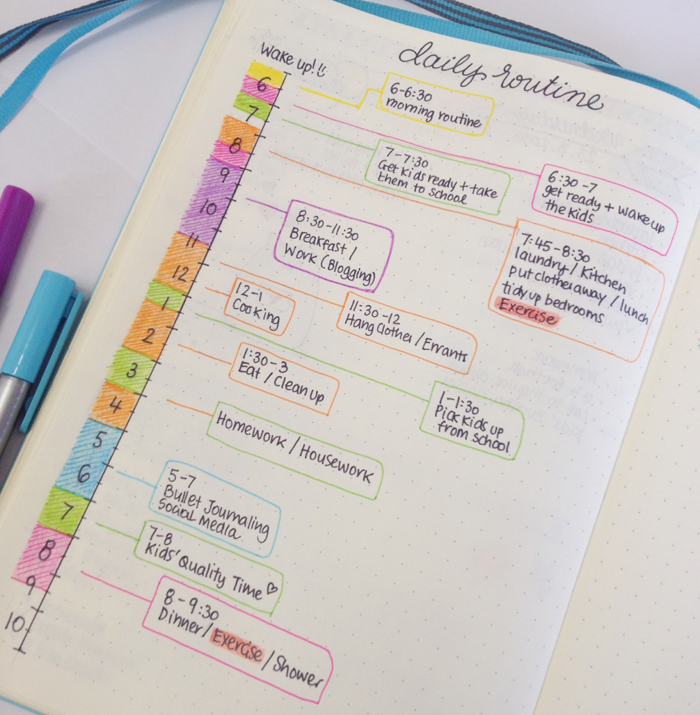 daily routine
Wake up!
6
7
8
9
10
11
12
1
2
3
4
5
6
7
8
9
10
6-6:30
morning routine
6:30-7
get ready + wake up
the kids
7-7:30
Get kids ready + take
them to school
7:45-8:30
laundry / Kitchen
put clothes away / lunch
tidy up bedrooms
Exercise
8:30-11:30
Breakfast /
Work (Blogging)
11:30-12
Hang Clothes / Errants
12-1
Cooking
1-1:30
Pick kids up
from school
1:30-3
Eat / Clean up
Homework / Housework
5-7
Bullet Journaling
Social Media
7-8
Kids' Quality Time ♡
8-9:30
Dinner / Exercise / Shower